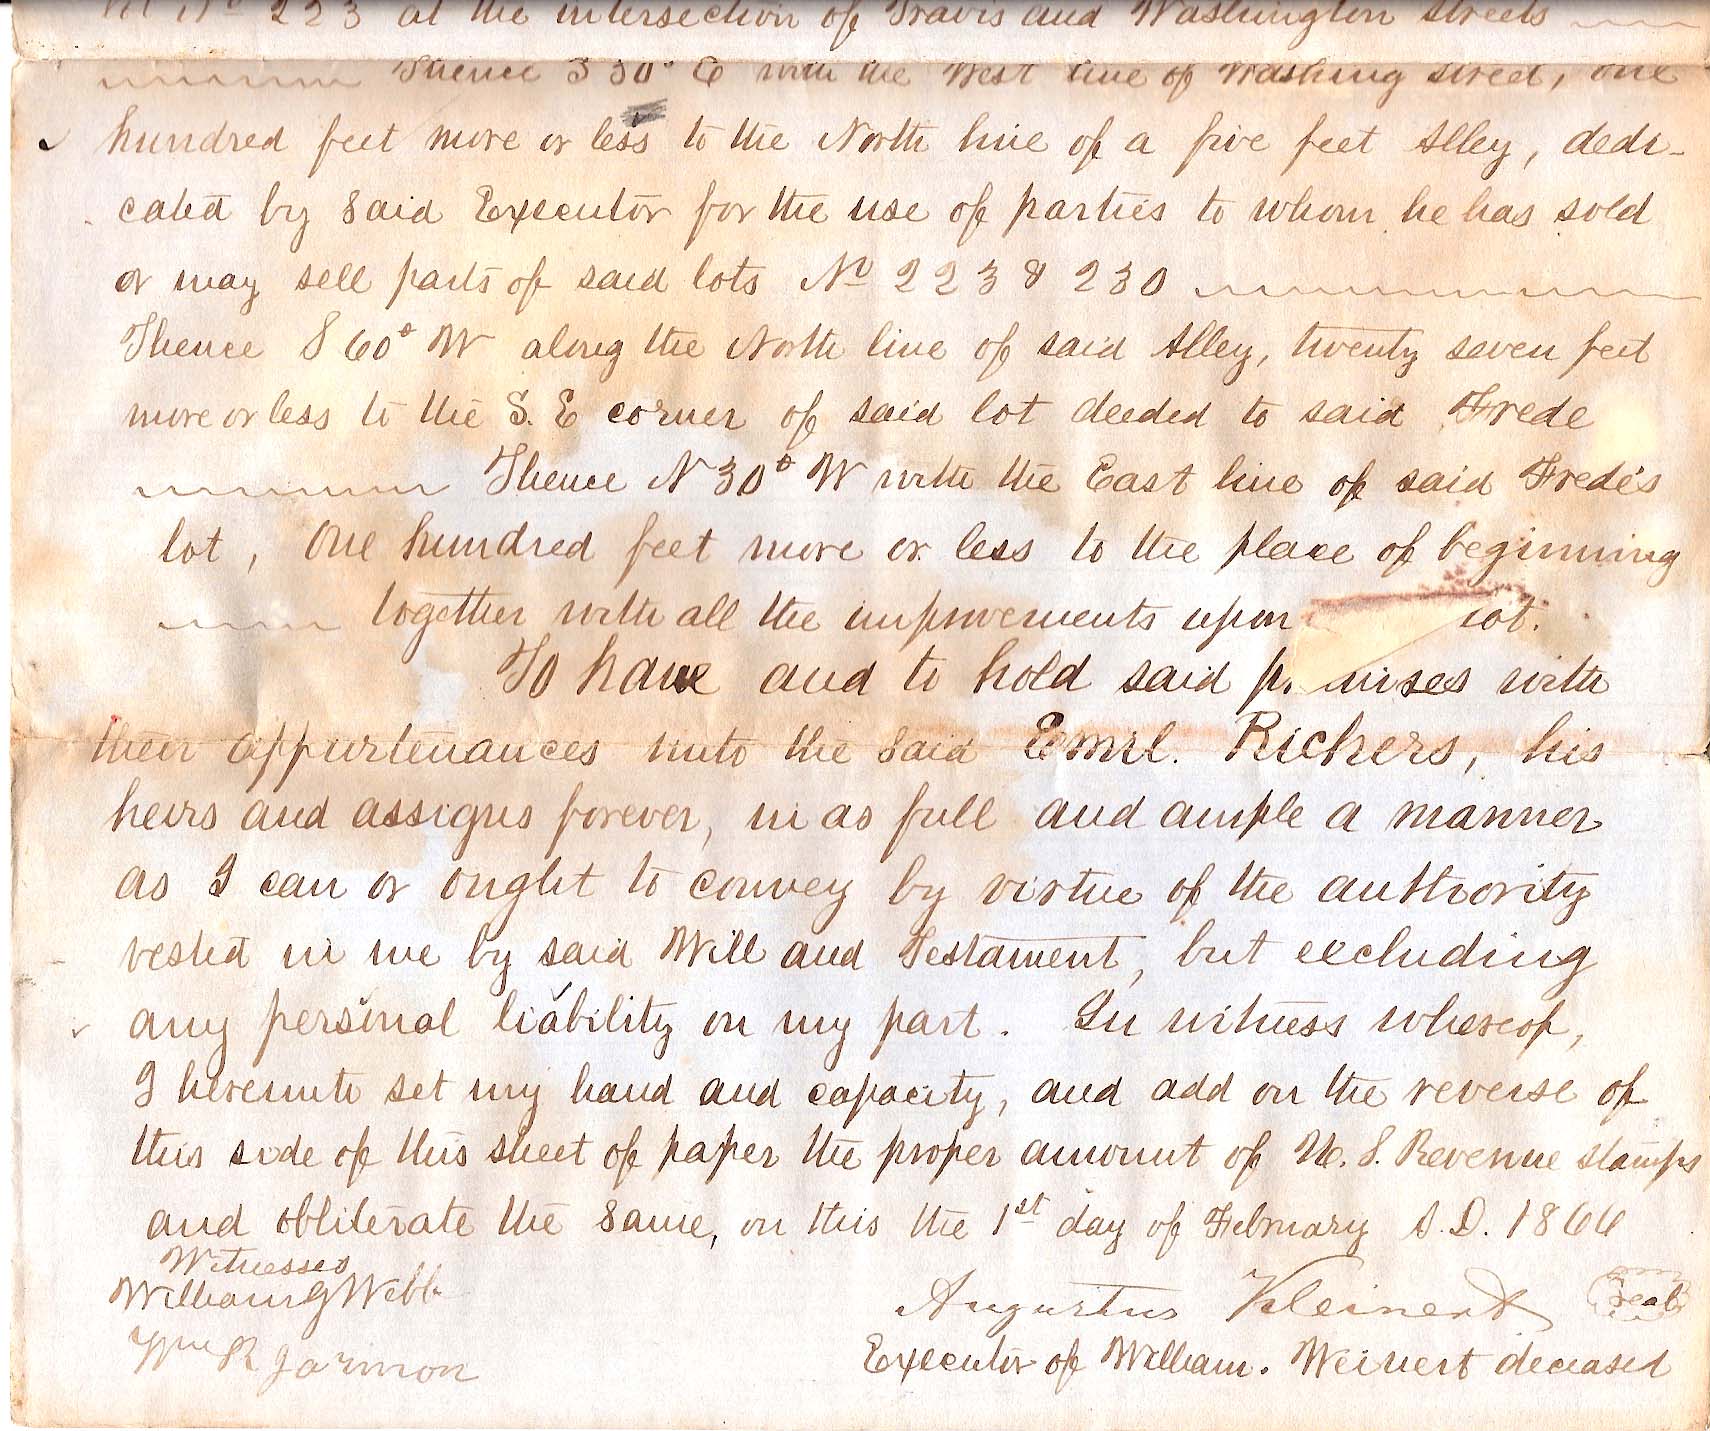 lot No 223 at the intersection of Travis and Washington streets
Thence S 30° E with the West line of Washing street, one
hundred feet more or less to the North line of a five feet Alley, dedi-
cated by said Executor for the use of parties to whom he has sold
or may sell parts of said lots No 223 & 230
Thence S 60° W along the North line of said Alley, twenty seven feet
more or less to the S. E corner of said lot deeded to said Frede
Thence N 30° W with the East line of said Frede's
lot, One hundred feet more or less to the place of beginning
together with all the improvements upon lot.
To have and to hold said p mises with
their appurtenances unto the said Emil. Richers, his
heirs and assigns forever, in as full and ample a manner
as I can or ought to convey by virtue of the authority
vested in me by said Will and Testament, but excluding
any personal liability on my part. In witness whereof,
I hereunto set my hand and capacity, and add on the reverse of
this side of this sheet of paper the proper amount of U. S. Revenue stamps
and obliterate the same, on this the 1st day of February A.D. 1866
Witnesses
William G Webb
Augustus Kleinert Seal
Wm R Jarmon
Executor of William. Weinert deceased